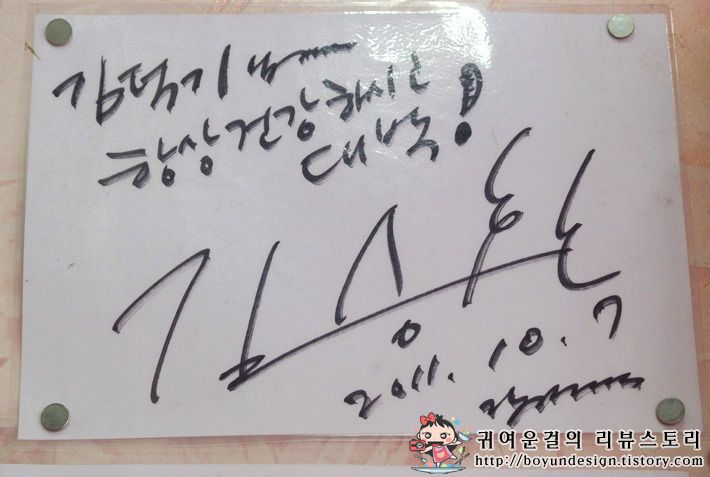 김덕기님
항상 건강하시고
대박!
김성환
2011. 10. 7
귀여운걸의 리뷰스토리
http://boyundesign.tistory.com